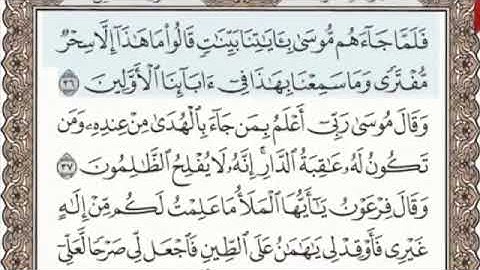 فَلَمَّا جَآءَهُم مُّوسَىٰ بِـَٔايَٰتِنَا بَيِّنَٰتٖ قَالُواْ مَا هَٰذَآ إِلَّا سِحۡرٞ
مُّفۡتَرٗى وَمَا سَمِعۡنَا بِهَٰذَا فِيٓ ءَابَآئِنَا ٱلۡأَوَّلِينَ ٣٦
وَقَالَ مُوسَىٰ رَبِّيٓ أَعۡلَمُ بِمَن جَآءَ بِٱلۡهُدَىٰ مِنۡ عِندِهِۦ وَمَن
تَكُونُ لَهُۥ عَٰقِبَةُ ٱلدَّارِۚ إِنَّهُۥ لَا يُفۡلِحُ ٱلظَّٰلِمُونَ ٣٧
وَقَالَ فِرۡعَوۡنُ يَٰٓأَيُّهَا ٱلۡمَلَأُ مَا عَلِمۡتُ لَكُم مِّنۡ إِلَٰهٍ
غَيۡرِي فَأَوۡقِدۡ لِي يَٰهَٰمَٰنُ عَلَى ٱلطِّينِ فَٱجۡعَل لِّي صَرۡحٗا لَّعَلِّيٓ